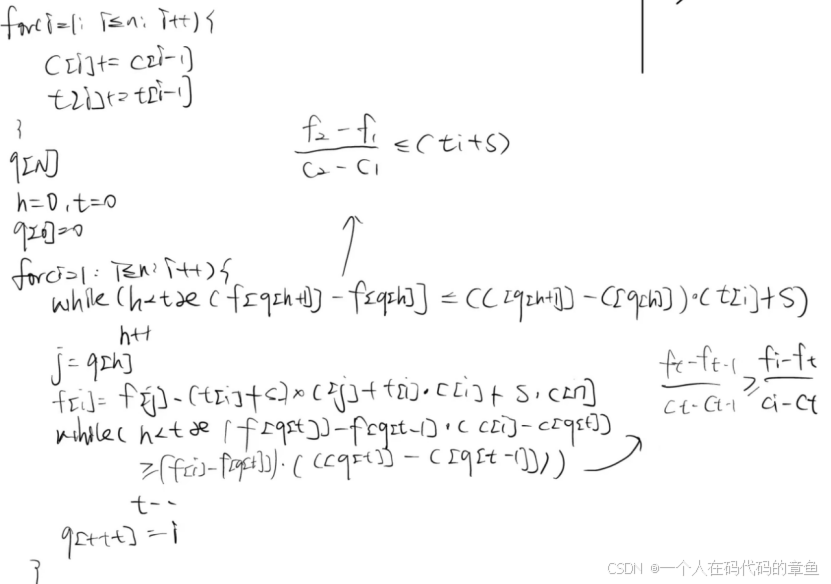 for(i=1; i≤n; i++){
c[i]+= c[i-1]
t[i]+=t[i-1]
}
q[N]
h=0, t=0
q[0]=0
for(i=1; i≤n; i++){
while(h<t && (f[q[h+1]] - f[q[h]] ≤ (c[q[h+1]] - c[q[h]])·(t[i]+S)
h++
j = q[h]
f[i]= f[j] - (t[i]+S)×c[j]+t[i]·c[i]+ S·c[n]
while( h<t && (f[q[t]]-f[q[t-1]·(c[i]-c[q[t]]
≥(f[i]-f[q[t]])·(c[q[t]] - c[q[t-1]]))
t--
q[++t] = i
}
f₂-f₁ / c₂-c₁ ≤(ti+S)
ft-ft-1 / ct-ct-1 ≥ fi-ft / ci-ct
CSDN @一个人在码代码的章鱼